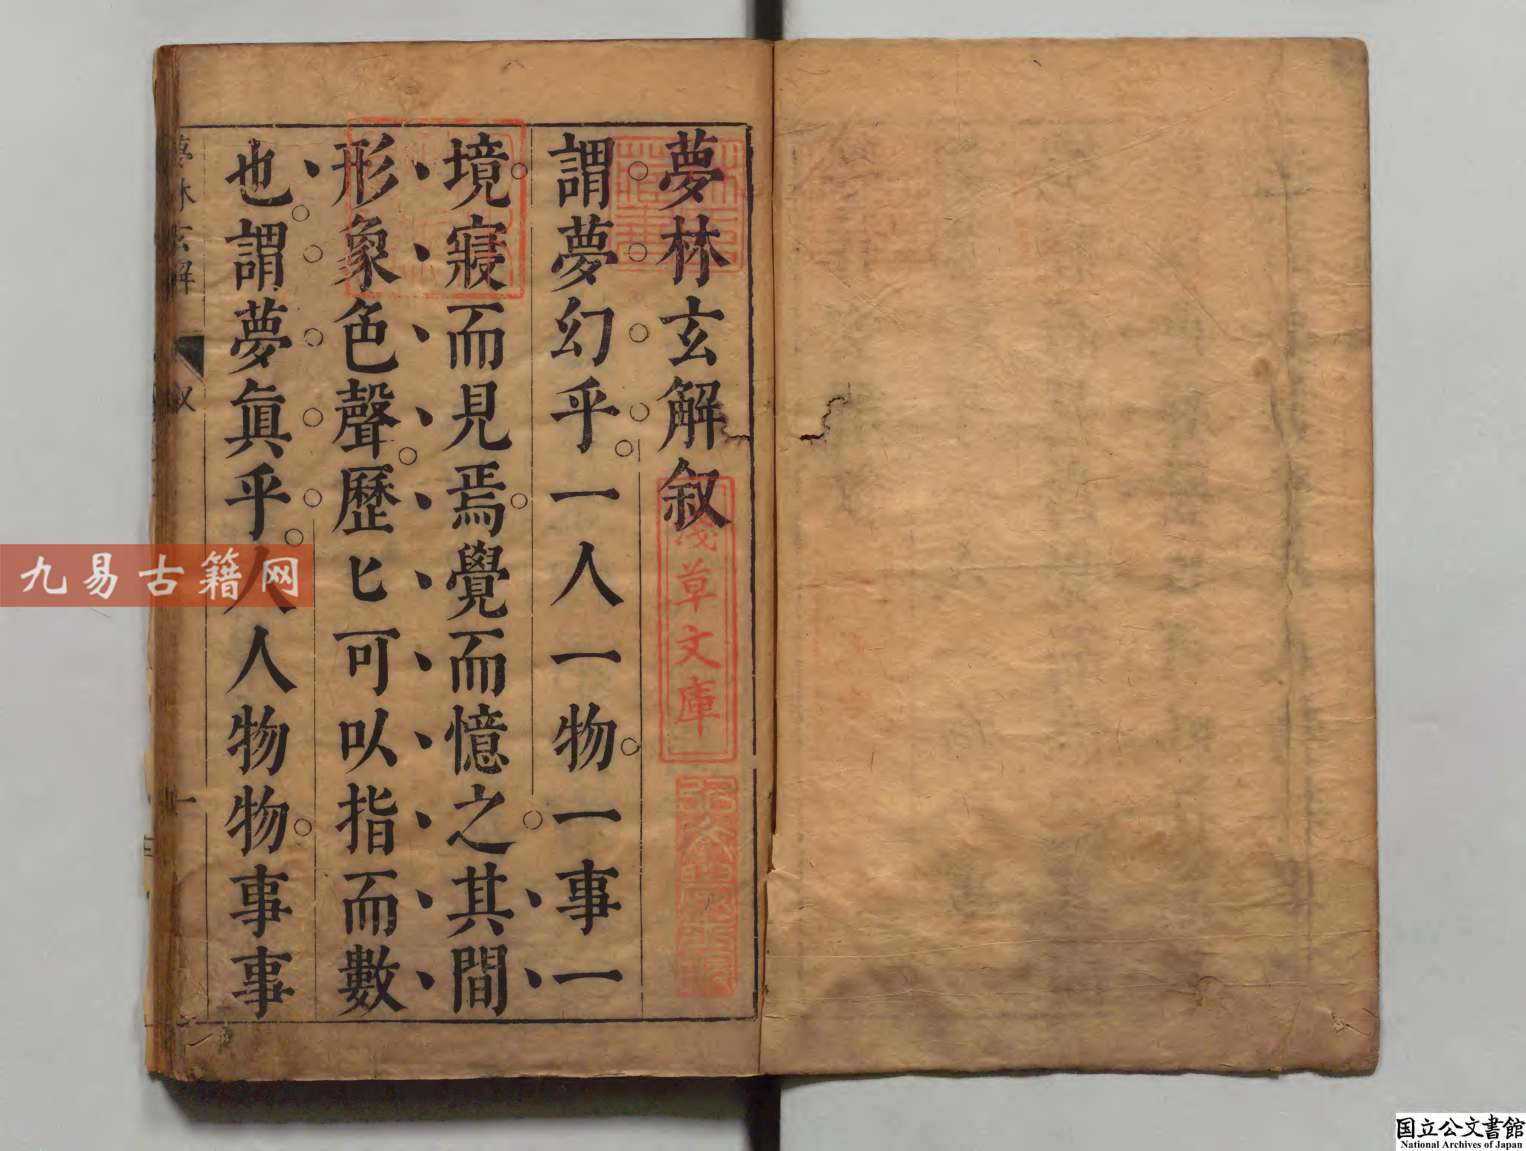 夢林玄解叙
謂夢幻乎一人一物一事一
境寢而見焉覺而憶之其間
形象色聲歷匕可以指而數
也謂夢眞乎人人物物事事
夢林玄解
叙
一
淺草文庫
日本政府圖書
林氏藏書
九易古籍网
国立公文書館
National Archives of Japan